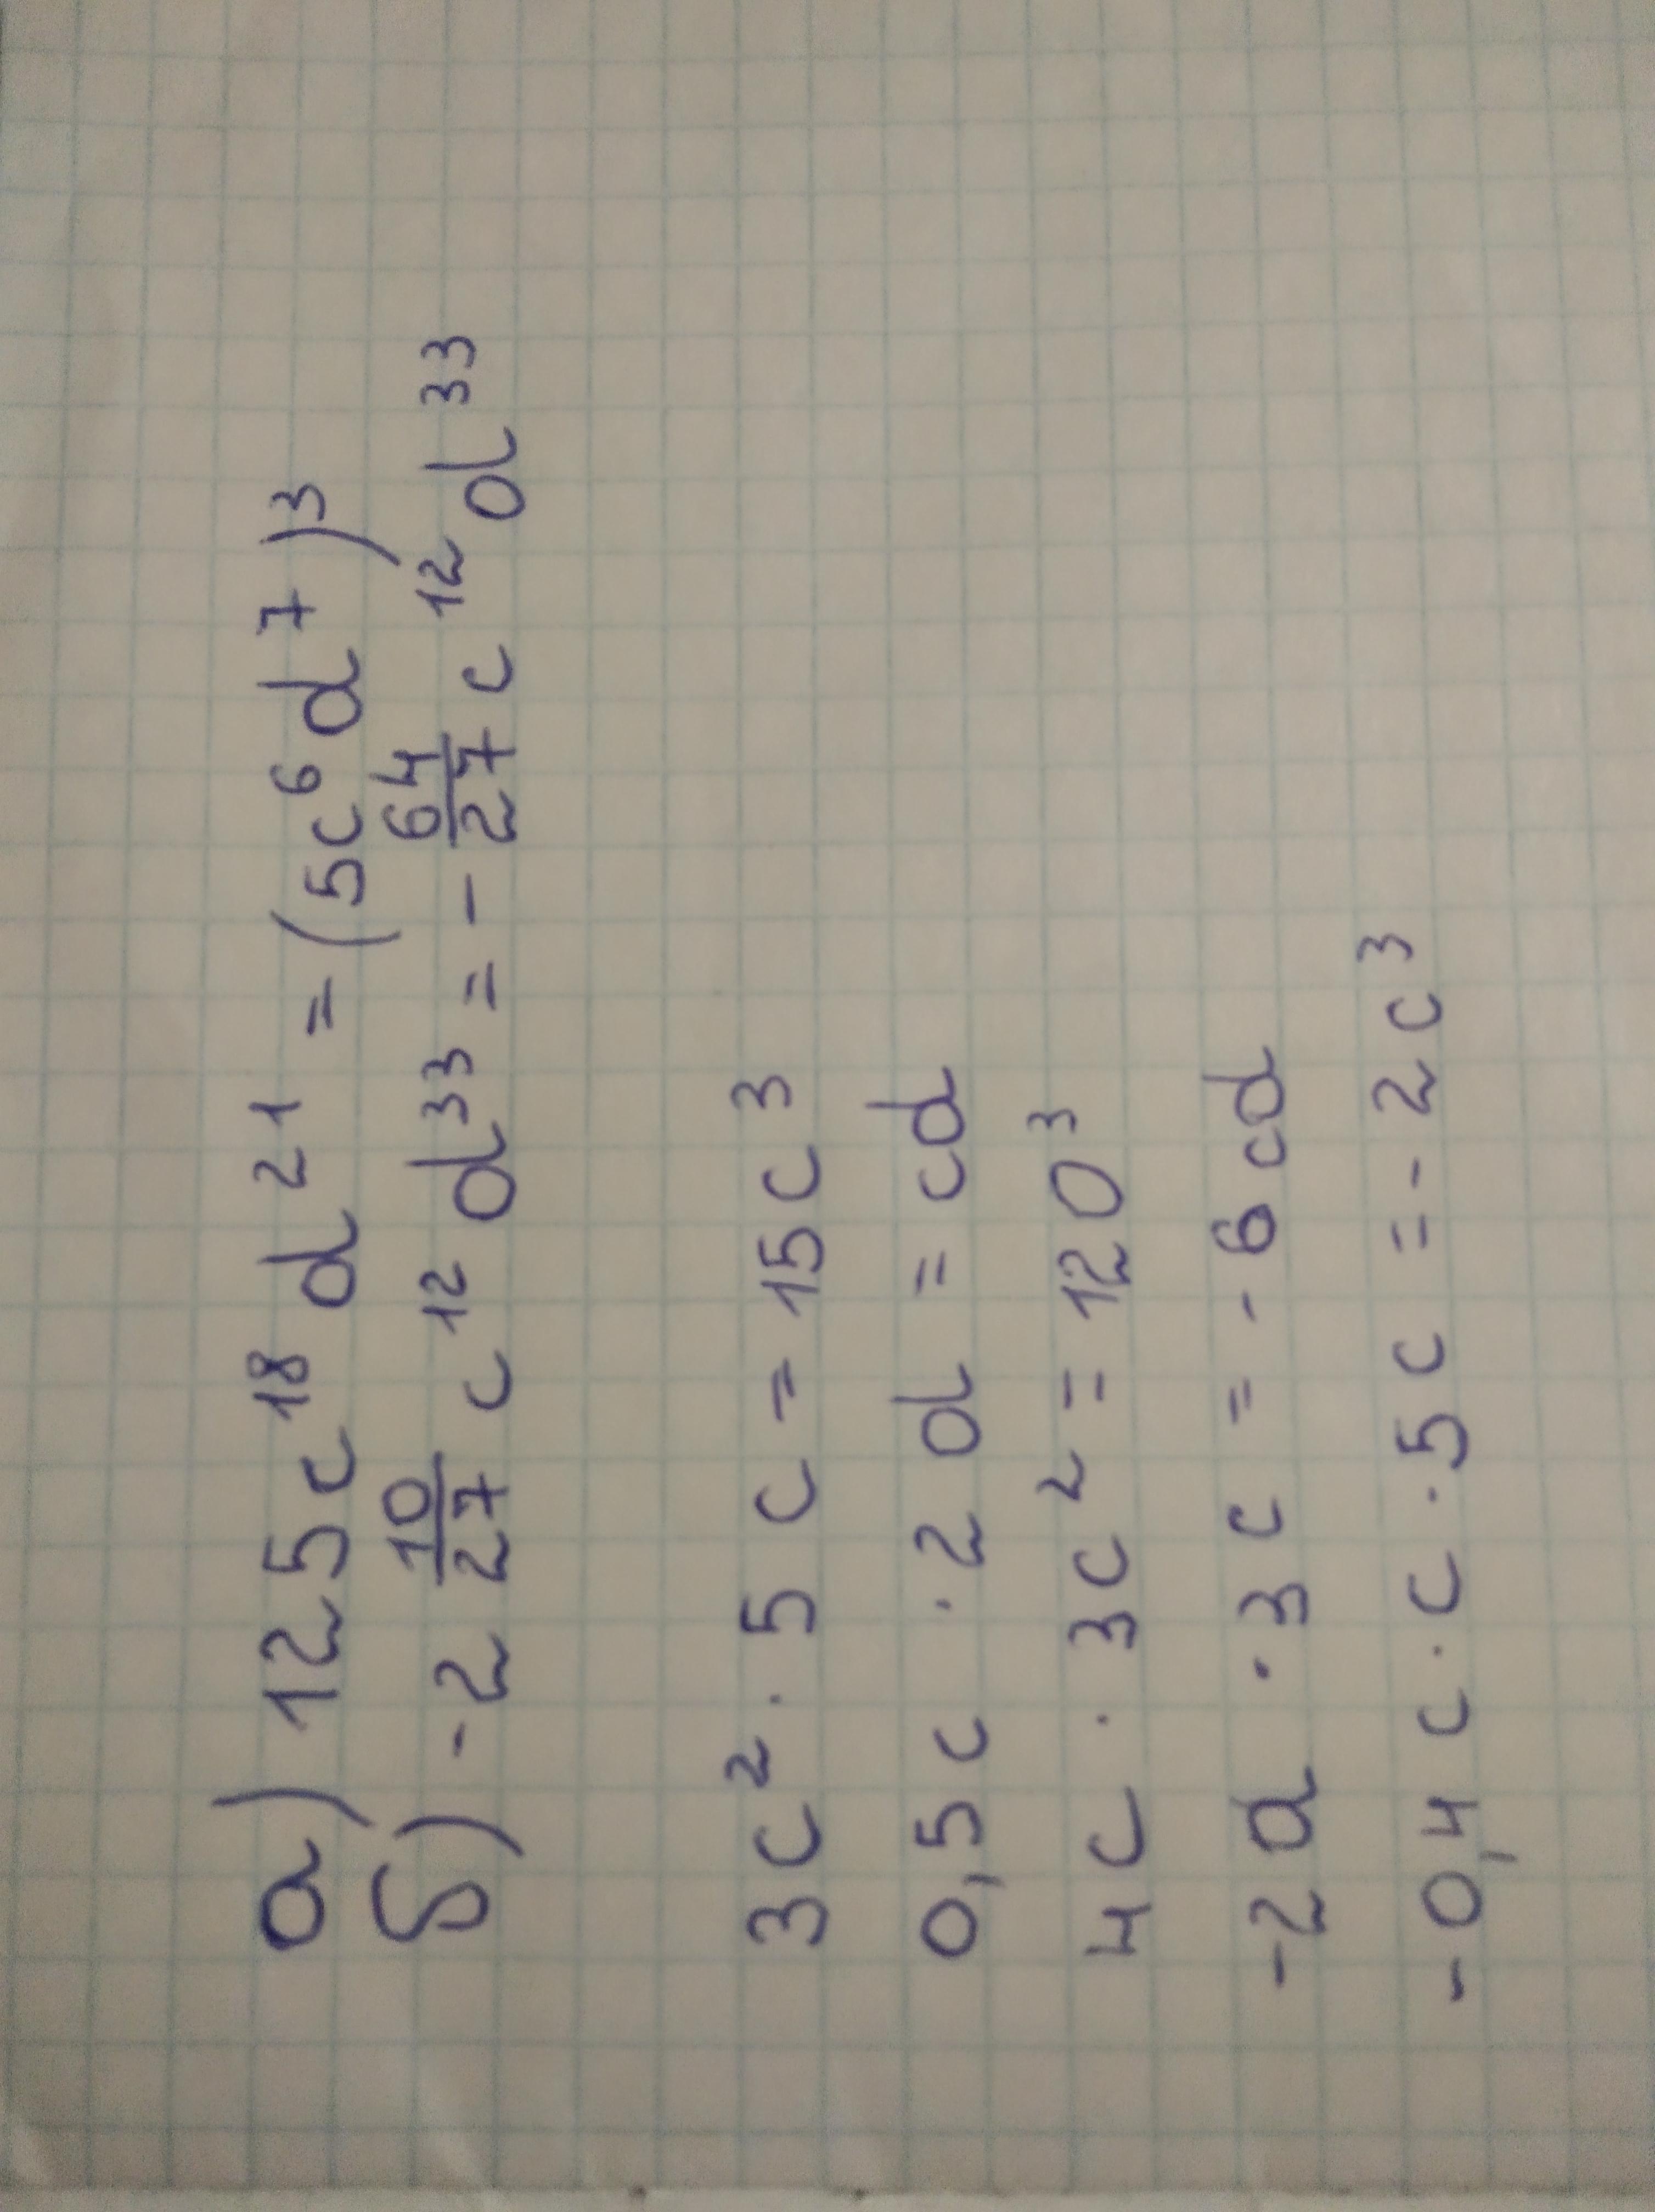 а) 125c¹⁸d²¹ = (5c⁶d⁷)³
б) -2 10/27 c¹²d³³ = - 64/27 c¹²d³³
3c² · 5c = 15c³
0,5c · 2d = cd
4c · 3c² = 120³
-2a · 3c = -6cd
-0,4c · c · 5c = -2c³